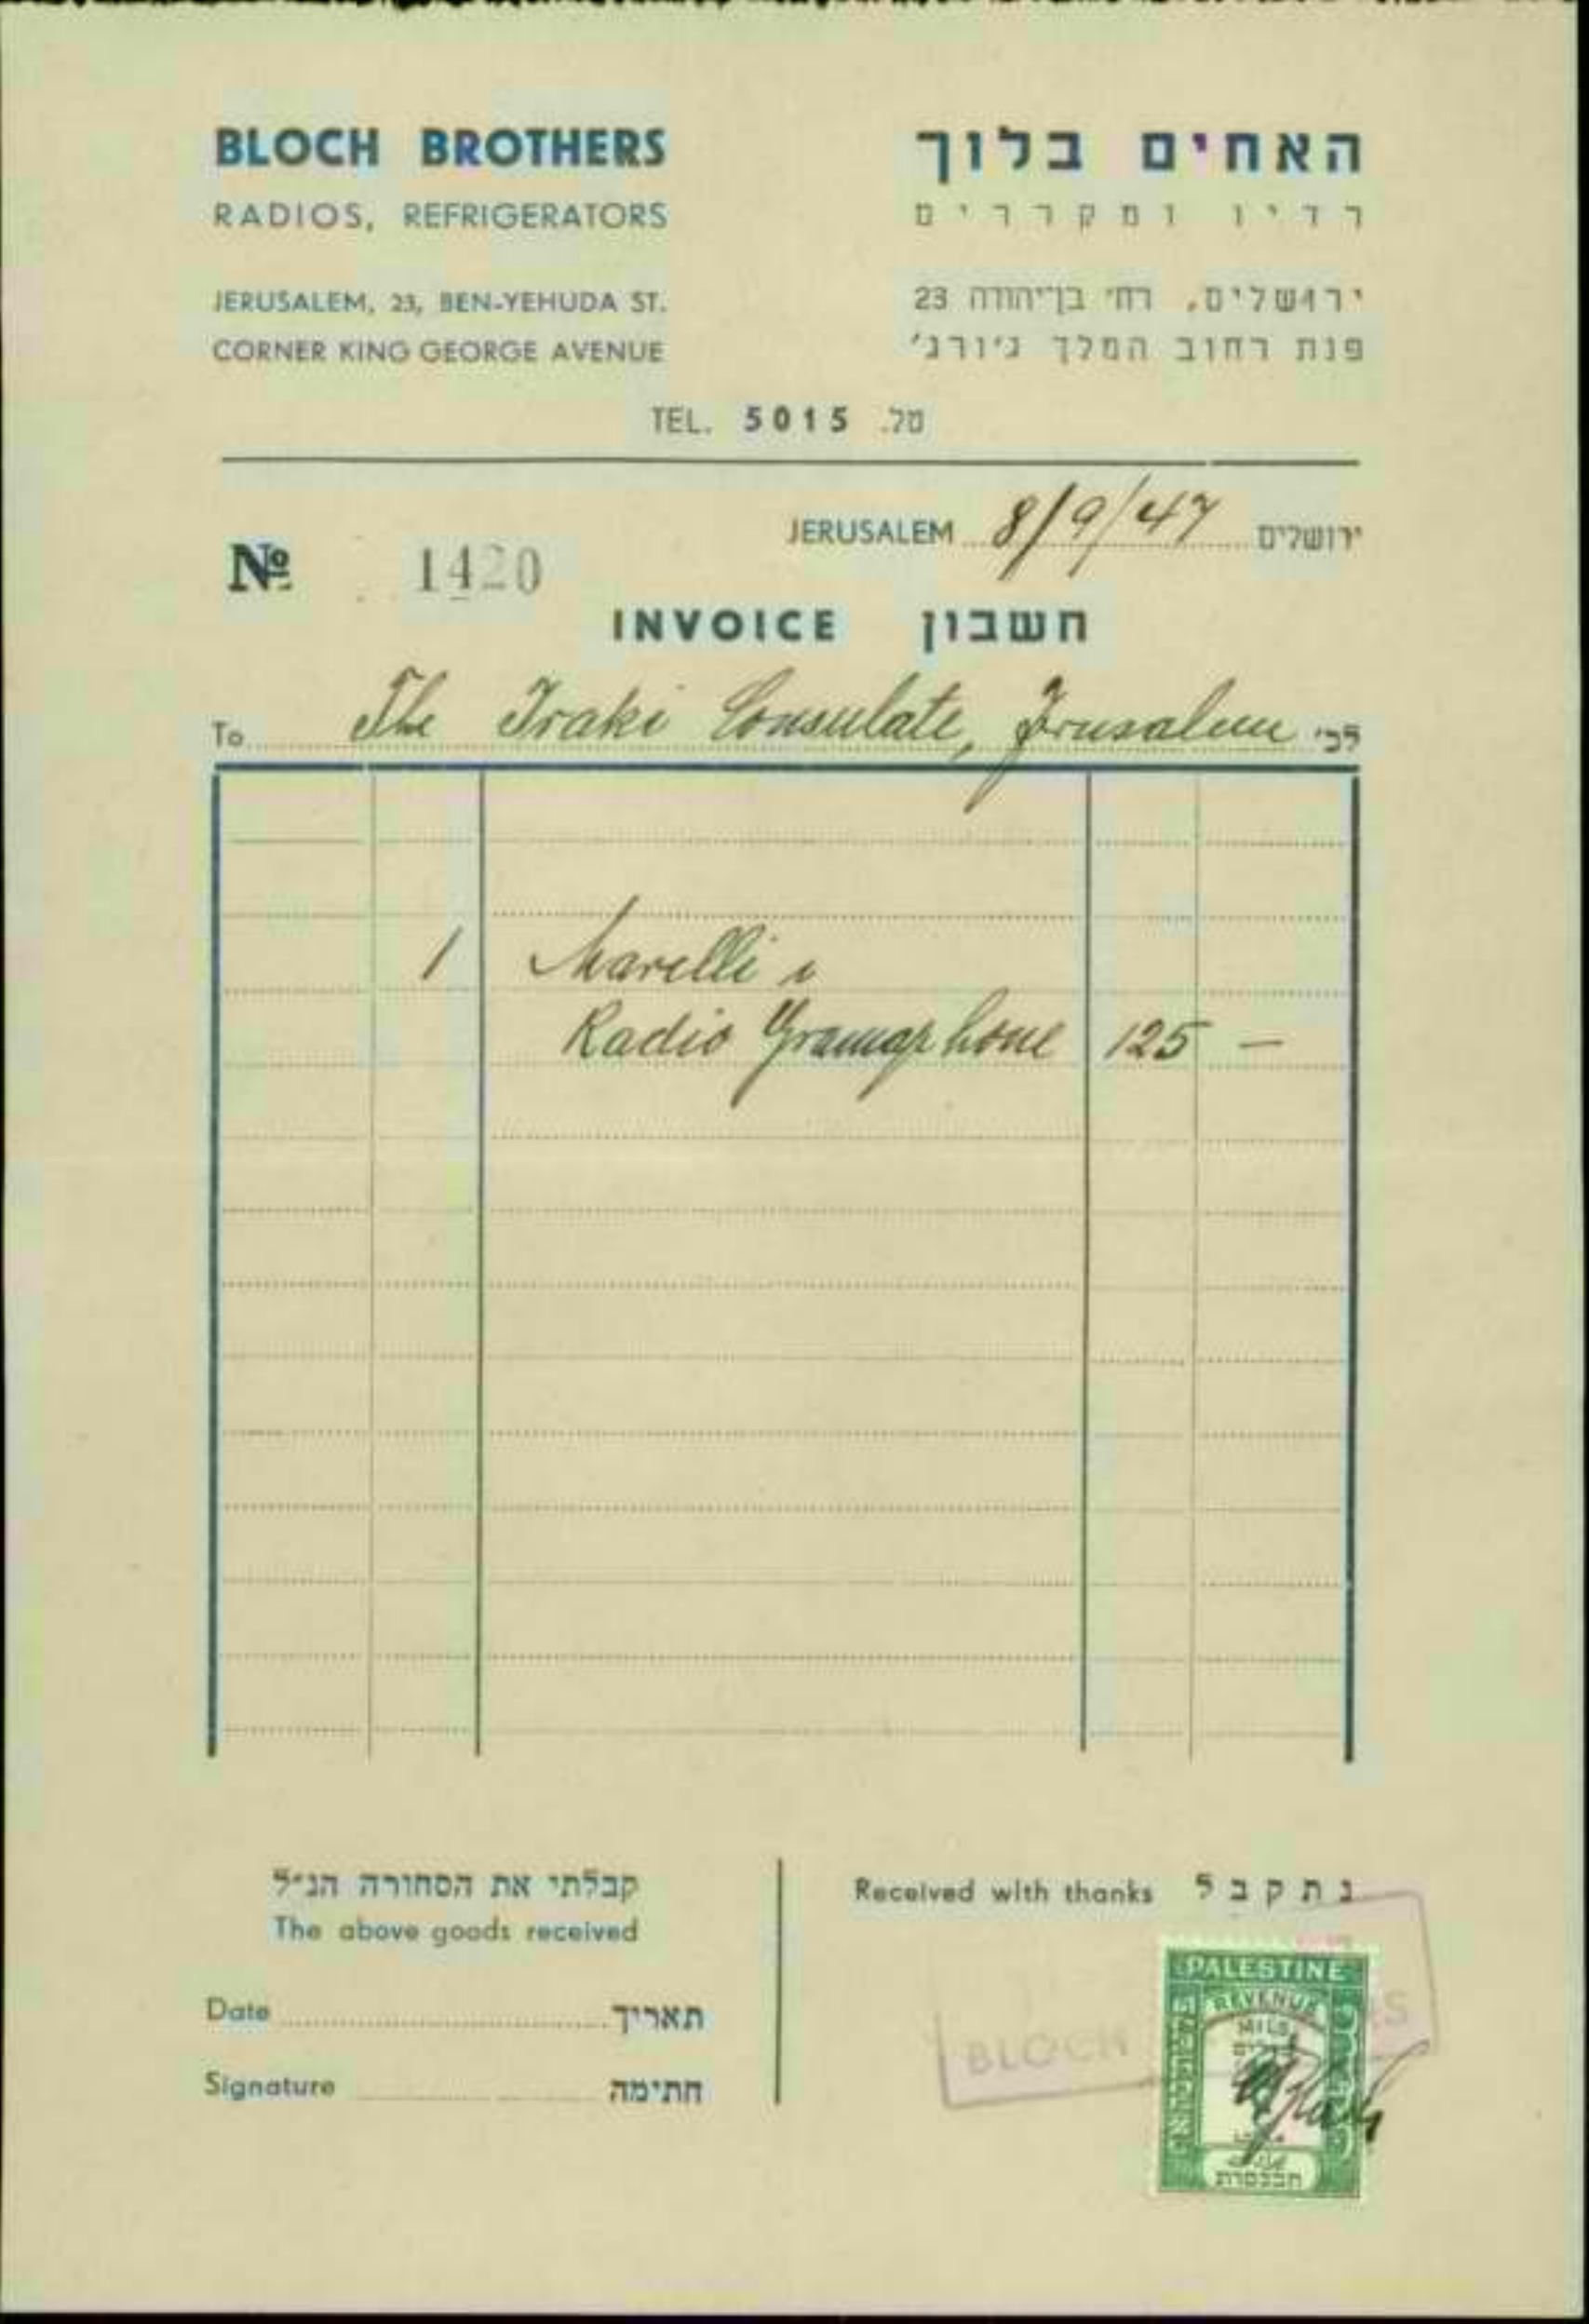 BLOCH BROTHERS
RADIOS, REFRIGERATORS
JERUSALEM, 23, BEN-YEHUDA ST.
CORNER KING GEORGE AVENUE
האחים בלוך
רדיו ומקררים
ירושלים, רח' בן־יהודה 23
פנת רחוב המלך ג'ורג'
TEL. 5015 טל.
JERUSALEM 8/9/47 ירושלים
№ 1420
INVOICE חשבון
To The Iraki Consulate, Jerusalem לכ'
1 Marelli
Radio Gramophone 125 —
קבלתי את הסחורה הנ״ל
The above goods received
Date תאריך
Signature חתימה
Received with thanks נתקבל
BLOCH
PALESTINE
REVENUE
MILS
הכנסות